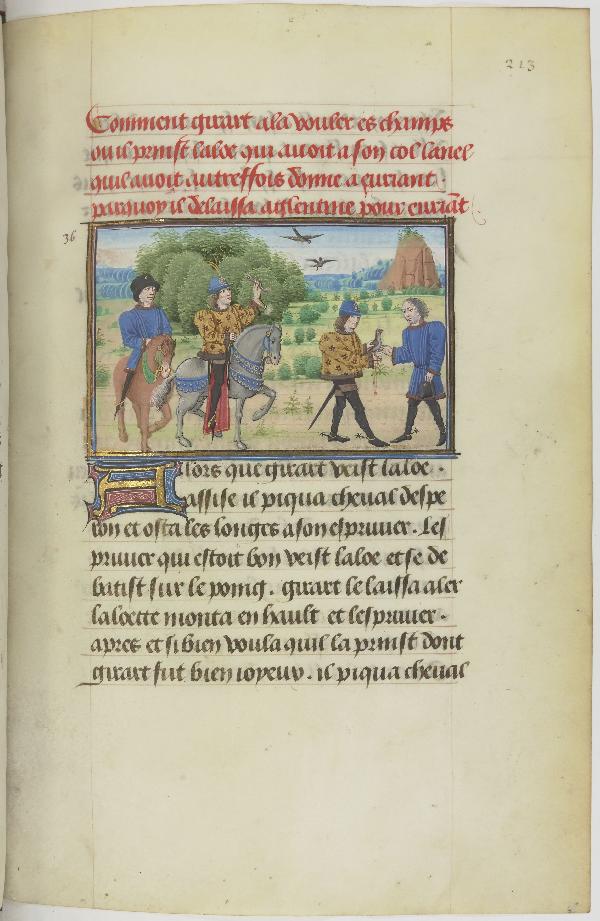 213
Comment girart ala vouler es champs
ou il prinst laloe qui auoit a son col lanel
quil auoit autreffois donne a euriant.
parquoy il delaissa aiglentine pour euriāt
36
Alors que girart veist laloe.
assise il piqua cheual despe
ron et osta les longes a son espriuier. Les
priuier qui estoit bon veist laloe et se de
batist sur le poing. girart le laissa aler
laloette monta en hault et lespriuier.
apres et si bien voula quil la prinst dont
girart fut bien ioyeux. il piqua cheual